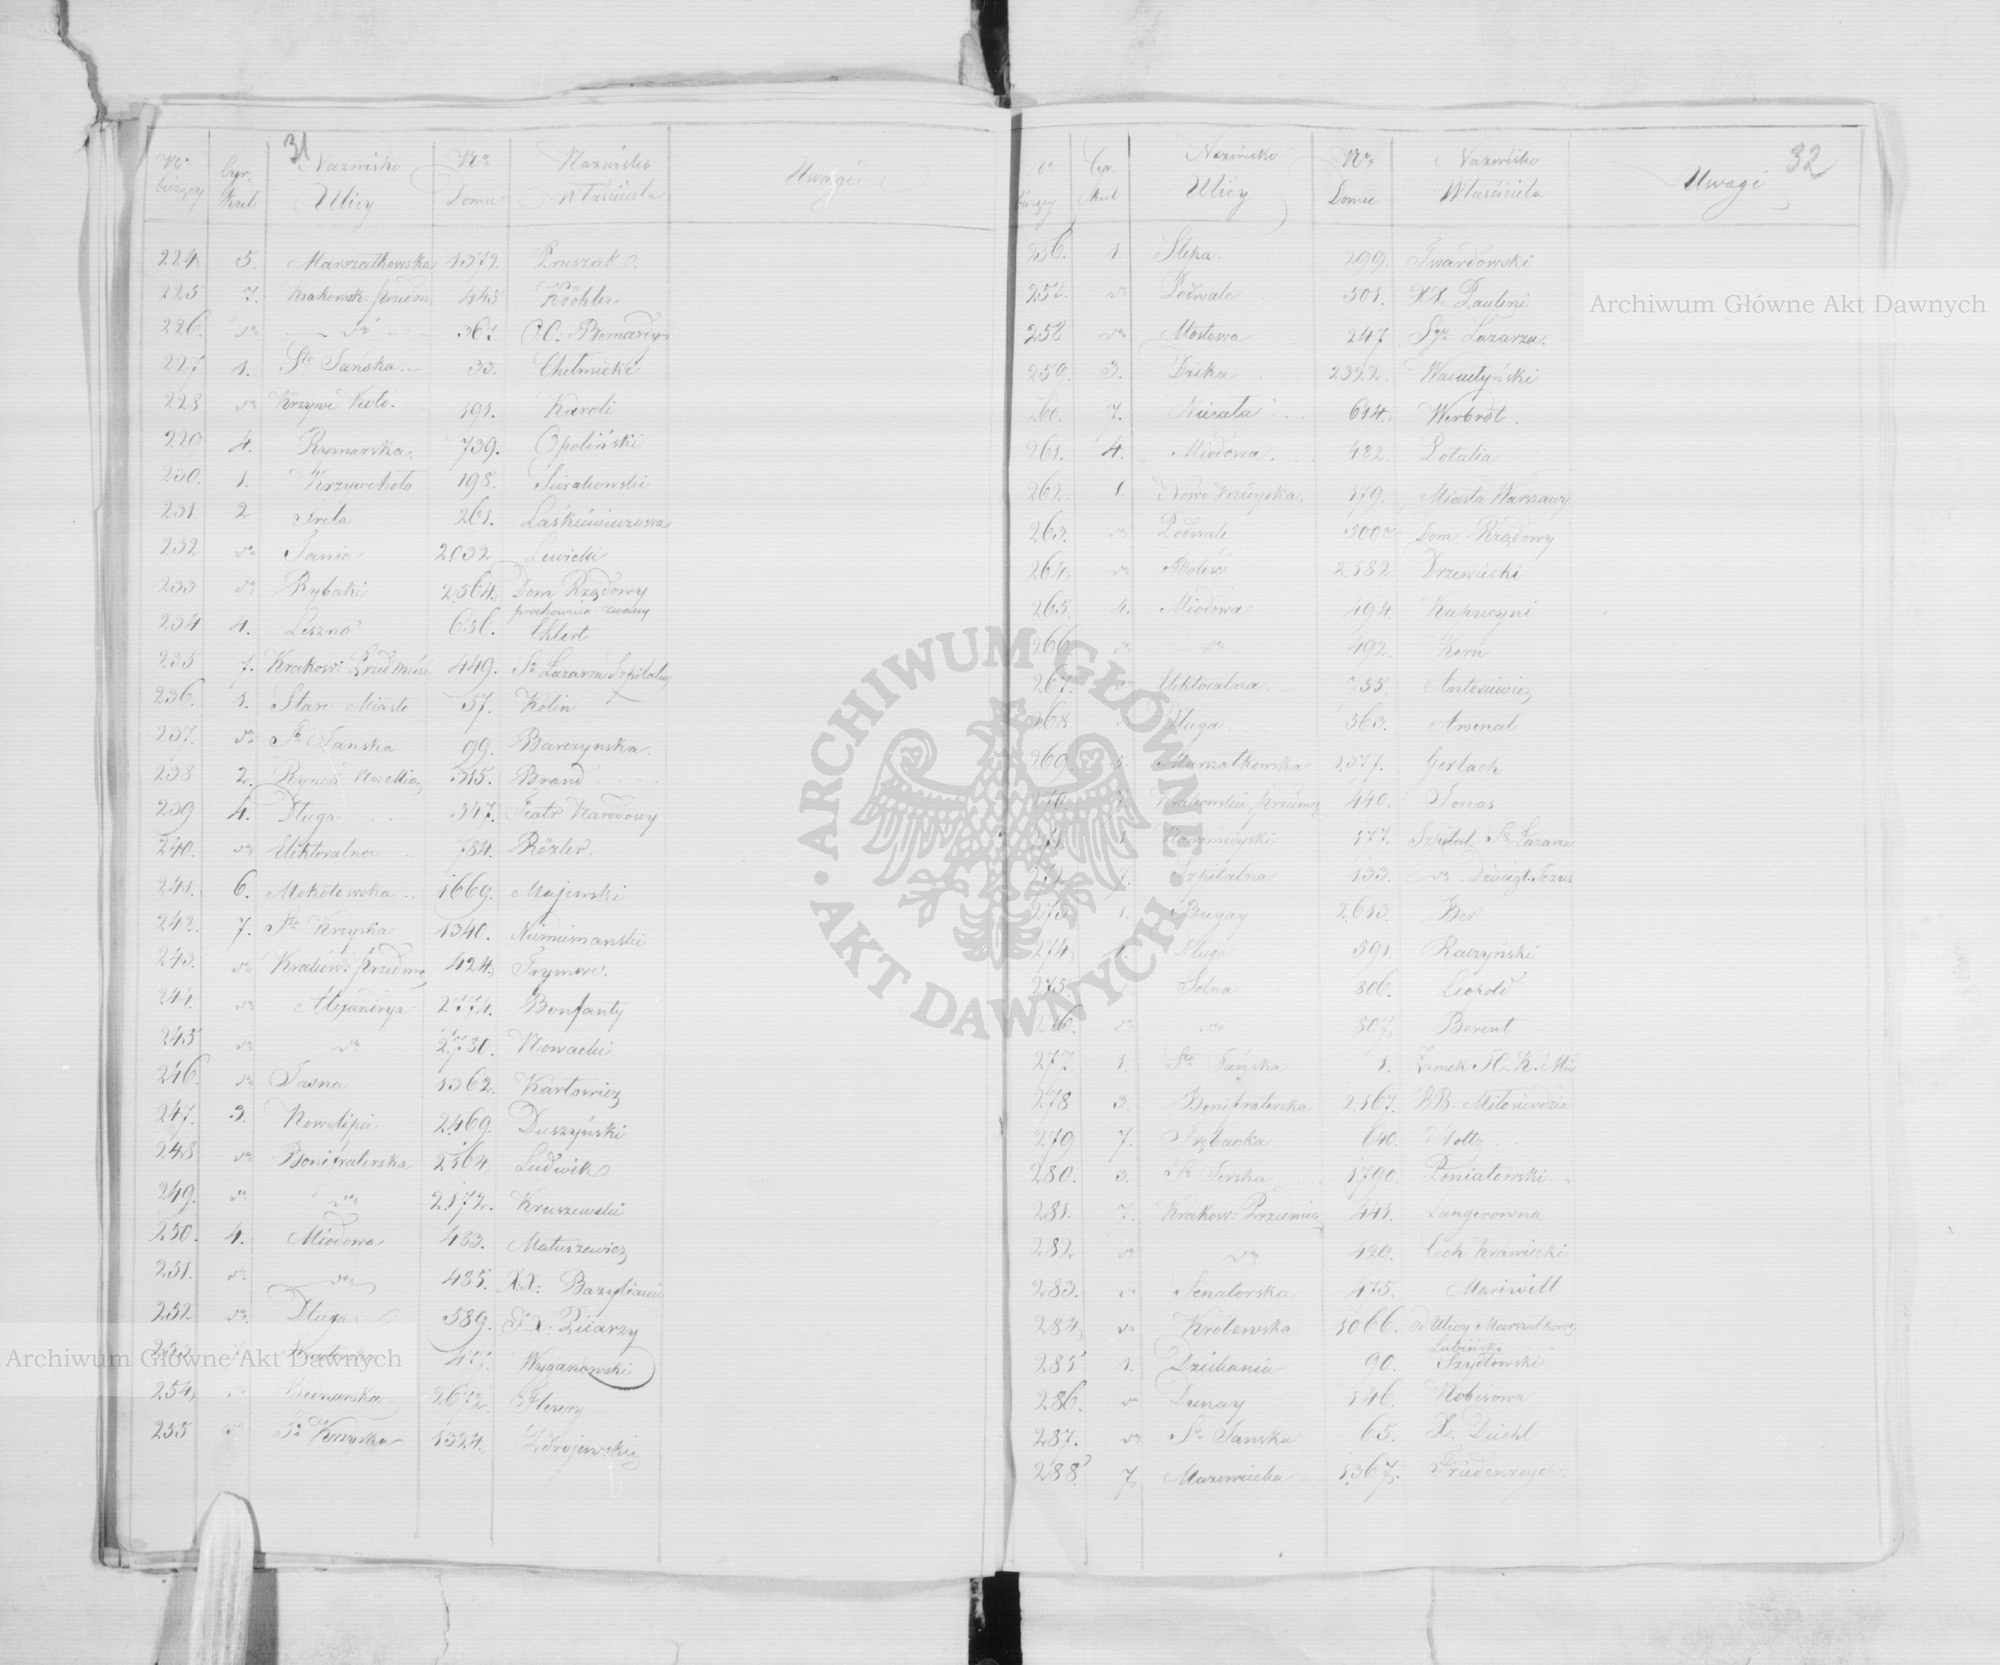 31
Nro bieżący Cyrkuł Nazwisko Ulicy Nro Domu Nazwisko Właściciela Uwagi
224 5. Marszałkowska 1372 Pruszak.
225 7. Krakowsk: Przedm. 445 Köchler
226. do do 367. OO: Bernardyni
227. 1. Sto Jańska. 33. Chełmicki
228 do Krzywe Koło. 191. Karoli
229 4. Rymarska. 739. Opoliński
230. 1. Krzywekoło 198. Sierakowski
231. 2 Freta 261. Laśkiewiczowa
232 do Fania 2032 Lewicki
233 do Rybaki 2564. Dom Rządowy
prochownia zwany
234 4. Leszno 656. Ehlert
235 7. Krakow: Przedmieś: 449. So Lazarza Szpitalny
236. 1. Stare Miasto 57. Kölin
237. do So Jańska 99. Barczynska.
238 2. Rynek No: Mia. 315. Brand
239 4. Długa 547. Teatr Narodowy
240. do Elektoralna 784. Rözler.
241. 6. Mokotowska 1669. Majewski
242. 7. Sto Krzyska 1340. Niemimanski
243. do Kraków: Przedmie. 424. Frymerc.
244. do Alexandrya 2774. Bonfanty
245 do do 2780. Nowacki
246. do Jasna 1362. Karłowicz
247. 3. Nowolipie 2469. Duszyński
248 do Bonifraterska 2164. Ludwik
249. do do 2172. Kruszewski
250. 4. Miodowa 483. Matuszewicz
251. do do 485. XX: Bazylianie
252. do Długa 589. XX: Piiarzy
477. Wyganowski
254. Bednarska 2672. Flerry
255 do So Krzyska 1324. Zdrojewski
32
No bieżący Cyrkuł Nazwisko Ulicy Nro Domu Nazwisko Właściciela Uwagi
256. 1. Slepa. 299. Twardowski
257. do Podwale 501. XX. Paulini
258 do Mostowa 247 Sgo Lazarza.
259. 3. Dzika 2322. Wasiutyński
260. 7. Niecała 614. Werbrot.
261. 4. Miodowa. 482. Potulia
262. 1. Nowo Mieyska. 179. Miasta Warszawy
263. do Podwale 500 Dom Rządowy
264. do Boleść 2582. Drzewiecki
265. 4. Miodowa 494. Kapucyni
266. do do 492. Kern
267. do Elektoralna. 755. Antosiewicz
268 Długa. 563. Arsenal
269. 5. Marszałkowska 1377. Gerlach
270. 7. Krakowskie Przedmie. 440. Jonas
271. 1. Nowomieyski 177. Szpital So Lazarza
272. 7. Szpitalna 133. do Dzieciąt: Jezus
273. 1. Brzegay 2613. Ber
274. 4. Długa 591. Raczyński
275. Solna 806. Leopold
276. do do 807. Berent
277 1. Sto Jańska 1. Zamek
278 3. Bonifraterska 2167. BB. Miłosierdzia
279 7. Trębacka 640. Moltz
280. 3. So Jerska 1790. Poniatowski
281. 7. Krakow: Przedmie. 441. Langerowna
282 do do 420. Cech Krawiecki
283. do Senatorska 475. Mariwill
284. do Królewska 1066. Od Ulicy Marszałkows:
Lubińsk.
285 1. Dziekania 90. Szydłowski
286. do Dunay 146. Nobisowa
287. do So Jańska 65. X. Diehl
288 7. Mazowiecka 1367. Friedenreych
Archiwum Główne Akt Dawnych
Archiwum Główne Akt Dawnych
ARCHIWUM GŁÓWNE · AKT DAWNYCH ·